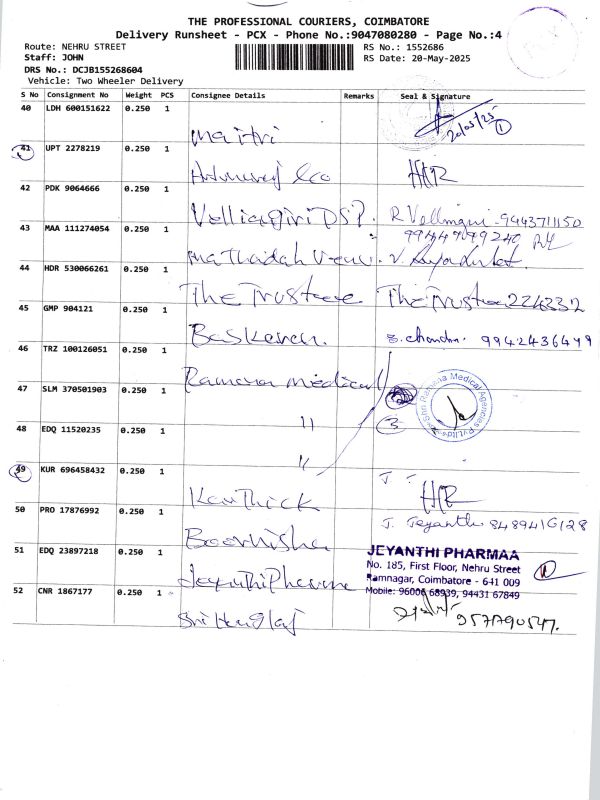 THE PROFESSIONAL COURIERS, COIMBATORE
Delivery Runsheet - PCX - Phone No.:9047080280 - Page No.:4
Route: NEHRU STREET
Staff: JOHN
DRS No.: DCJB155268604
Vehicle: Two Wheeler Delivery
RS No.: 1552686
RS Date: 20-May-2025
S No Consignment No Weight PCS Consignee Details Remarks Seal & Signature
40 LDH 600151622 0.250 1 Maitri 20/05/25 1
41 UPT 2278219 0.250 1
42 PDK 9064666 0.250 1 Velliagiri DSP. 9443711150
43 MAA 111274054 0.250 1
44 HDR 530066261 0.250 1 The Trustee The Trustee 224332
45 GMP 904121 0.250 1 Baskeran. 9942436479
46 TRZ 100126051 0.250 1 Ramona medical
47 SLM 370501903 0.250 1 "
Shri Ramona Medical Agencies Pvt Ltd
48 EDQ 11520235 0.250 1 " 3
49 KUR 696458432 0.250 1 Karthick
50 PRO 17876992 0.250 1 J. Jeyanthi 8489416128
51 EDQ 23897218 0.250 1 Jeyanthi Pharma
JEYANTHI PHARMAA
No. 185, First Floor, Nehru Street
Ramnagar, Coimbatore - 641 009
Mobile: 96006 68939, 94431 67849
52 CNR 1867177 0.250 1